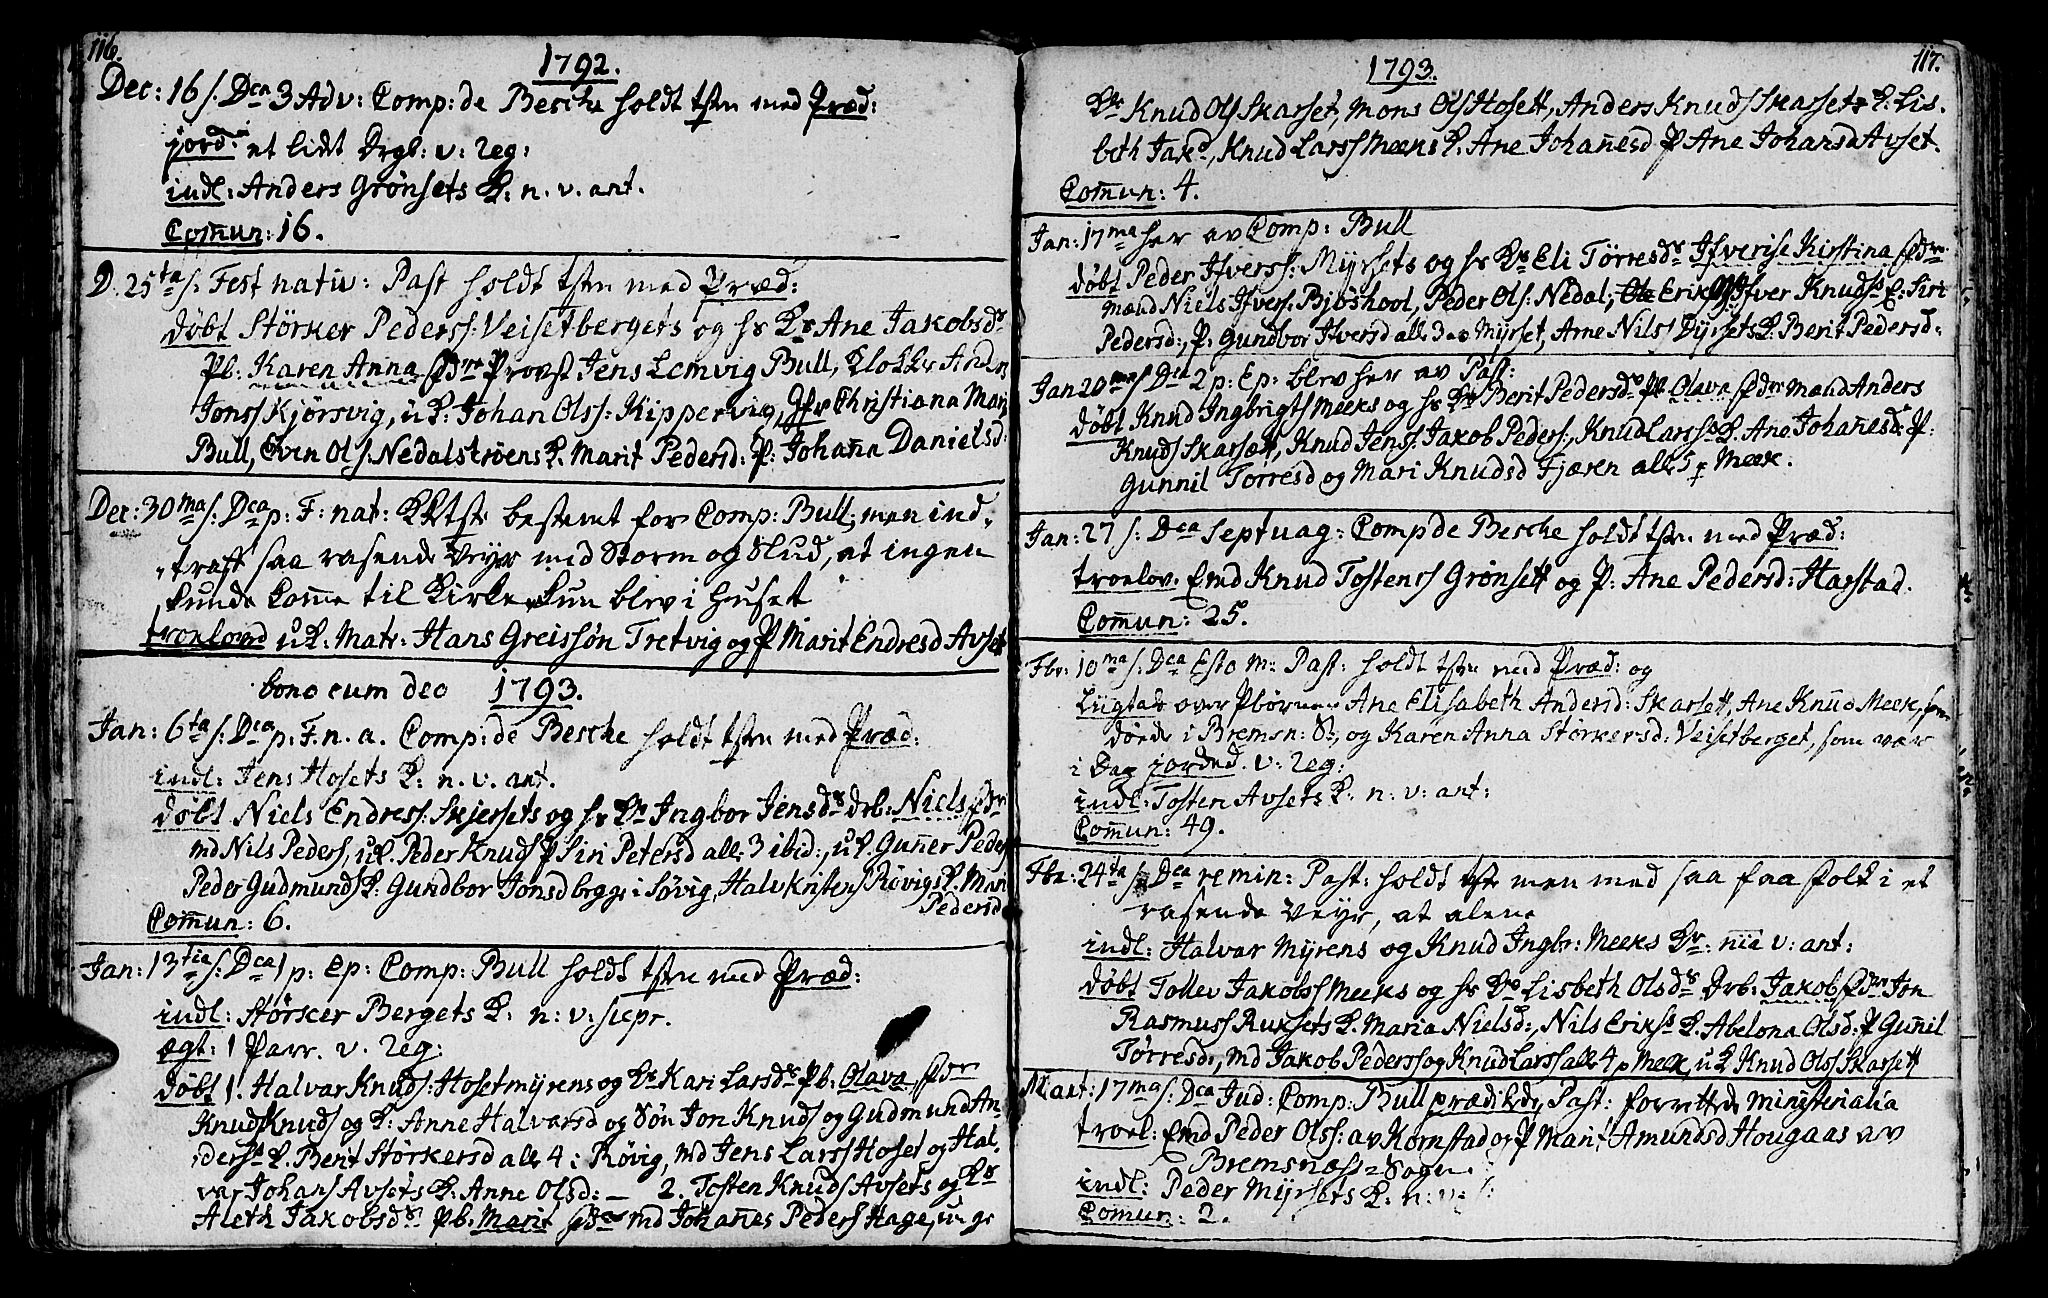 116.
1792.
Dec: 16 s. Dca 3 Adv: Comp: de Besche holdt tsten med Præd:
jord: et lidt Drgb: v: Reg:
indl: Anders Grønsets K: n. v. ant.
Comun: 16.
D. 25ta s: Fest nativ: Past holdt tsten med Præd:
døbt Størker Peders: Veisetbergets og hs Ks Ane Jakobsdr
Pb: Karen Anna fdre Provst Jens Lemvig Bull, Klokker Anders
Jonss Kjørsvig, uK. Johan Olss: Kippervig, Jfr Christiana Mar:
Bull, Even Ols: Nedalstrøens K. Marit Pedersd: P. Johana Danielsd:
Dec: 30ma s. Dca p: F: nat: bestemt for Comp: Bull; men ind-
traff saa rasende Veyr med Storm og Slud, at ingen
kunde kome til Kirke, kun blev i Huset
troelovd uK. Matr: Hans Greissøn Tretvig og P Marit Endresd Avset
bono cum deo 1793.
Jan: 6ta s: Dca p: F. n. a. Comp: de Besche holdt tsten med Præd:
indl: Jens Hosets K: n. v. ant.
døbt Niels Endress: Skjersets og hs Ks Ingbor Jensdr drb: Niels fdr
md Nils Peders, uK. Peder Knuds P Siri Petersd alle 3 ibid:, uK. Guner Peders
Peder Gudmunds K. Gundbor Jonsd begge i Søvig, Halvkristens Røvigs K. Mari
Pedersd
Comun: 6.
Jan: 13tia s: Dca 1 p: Ep: Comp: Bull holdt tsten med Præd:
indl: Størker Bergets K: n: v: scpr.
ægt: 1 Parr. v. Reg:
døbt 1. Halvar Knuds: Hosetmyrens og Ks Kari Larsdr Pb: Olava, fdr
Knud Knuds og K: Anne Halvarsd og Søn Jon Knuds og Gudmund An-
ders K. Berit Størkersd alle 4 i Røvig, md Jens Larss Hoset og Hal-
var Johans Avsets K. Anne Olsd: — 2. Tosten Knuds Avsets og Ks
Aleth Jakobsdr Pb. Marit fdre md Johanes Peders Hage, ung
117.
1793.
Kr Knud Ols Skarset, Mons Ols Hosett, Anders Knuds Skarsets K: Lis-
beth Jakd, Knud Larss Meeks K. Ane Johanesd P Ane Johansd Avset.
Comun: 4.
Jan: 17ma her av Comp: Bull
døbt Peder Ifverss: Myrsets og hs Ks Eli Tørresdr Ifverise Kirstina fdre
mænd Niels Ifvers. Bjøshool, Peder Ols: Nedal, Ole Eriks Ifver Knuds K: Siri
Pedersd:, P. Gundbor Ifversd alle 3 Myrset, Arne Nils Dyrsets K. Berit Pedersd:
Jan 20ma s Dca 2 p: Ep: blev her av Past:
døbt Knud Ingbrigts Meeks og hs Ks Berit Pedersdr Pb Olava fdr mænd Anders
Knuds Skarsett, Knud Jens: Jakob Peders:, Knud Larss K. Ane Johanesd: P:
Gunnil Torresd og Mari Knudsd Fjæren alle 5 p Meek.
Jan: 27 s: Dca Septuag: Comp de Besche holdt tsten med Præd:
troelov. Emd Knud Tostens Grønsett og P: Ane Pedersd: Harstad.
Comun: 25.
Fbr: 10ma s. Dca Esto m: Past: holdt tsten med Præd: og
Lygtede over Pbørnene Ane Elisabeth Andersd: Skarsett, Ane Knud Meek, som
døede i Bremsn: S:, og Karen Anna Størkersd: Veisetberget, som var
i Dag jorded. v: Reg:
indl: Tosten Avsets K: n: v: ant:
Comun: 49.
Fbr: 24ta s Dca remin: Past: holdt tste men med saa faa folk i et
rasende Veyr, at alene
indl: Halvar Myrens og Knud Ingbr: Meeks Kr. nia v: ant:
døbt Tollev Jakobs Meeks og hs Ks Lisbeth Olsdr Drb: Jakob fdr Jon
Rasmuss Ruksets K. Maria Nielsd:, Nils Eriks K. Abelona Olsd: P Gunil
Tørresd:, md Jakob Peders og Knud Larss alle 4 p Meek, uK Knud Ols Skarsett
Mart: 17ma s. Dca Jud: Comp: Bull prædikede, Past: forrettede ministerialia
troel: Emd Peder Ols: av Kornstad og P Marit Amundsd Hougaas av
Bremsnæs Sogn
indl: Peder Myrsets K: n: v: s:
Comun: 2.